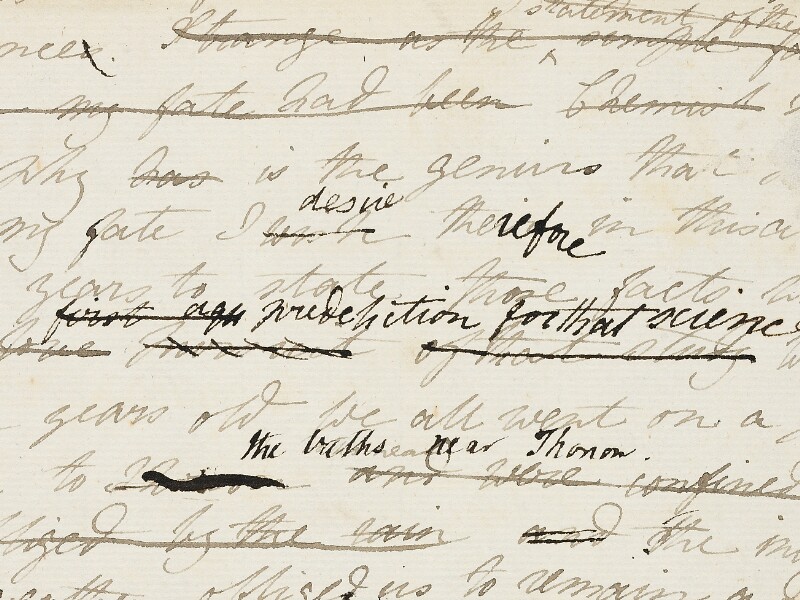 statement of the
Strange as the simple
my fate had been Chemist
why has is the genius that
desire
my fate I wish therefore in this
years to state those facts
first predeliction for that science
of that
years old we all went on a
the baths near Thonon.
to and were confined
by the rain and the
obliged us to remain a